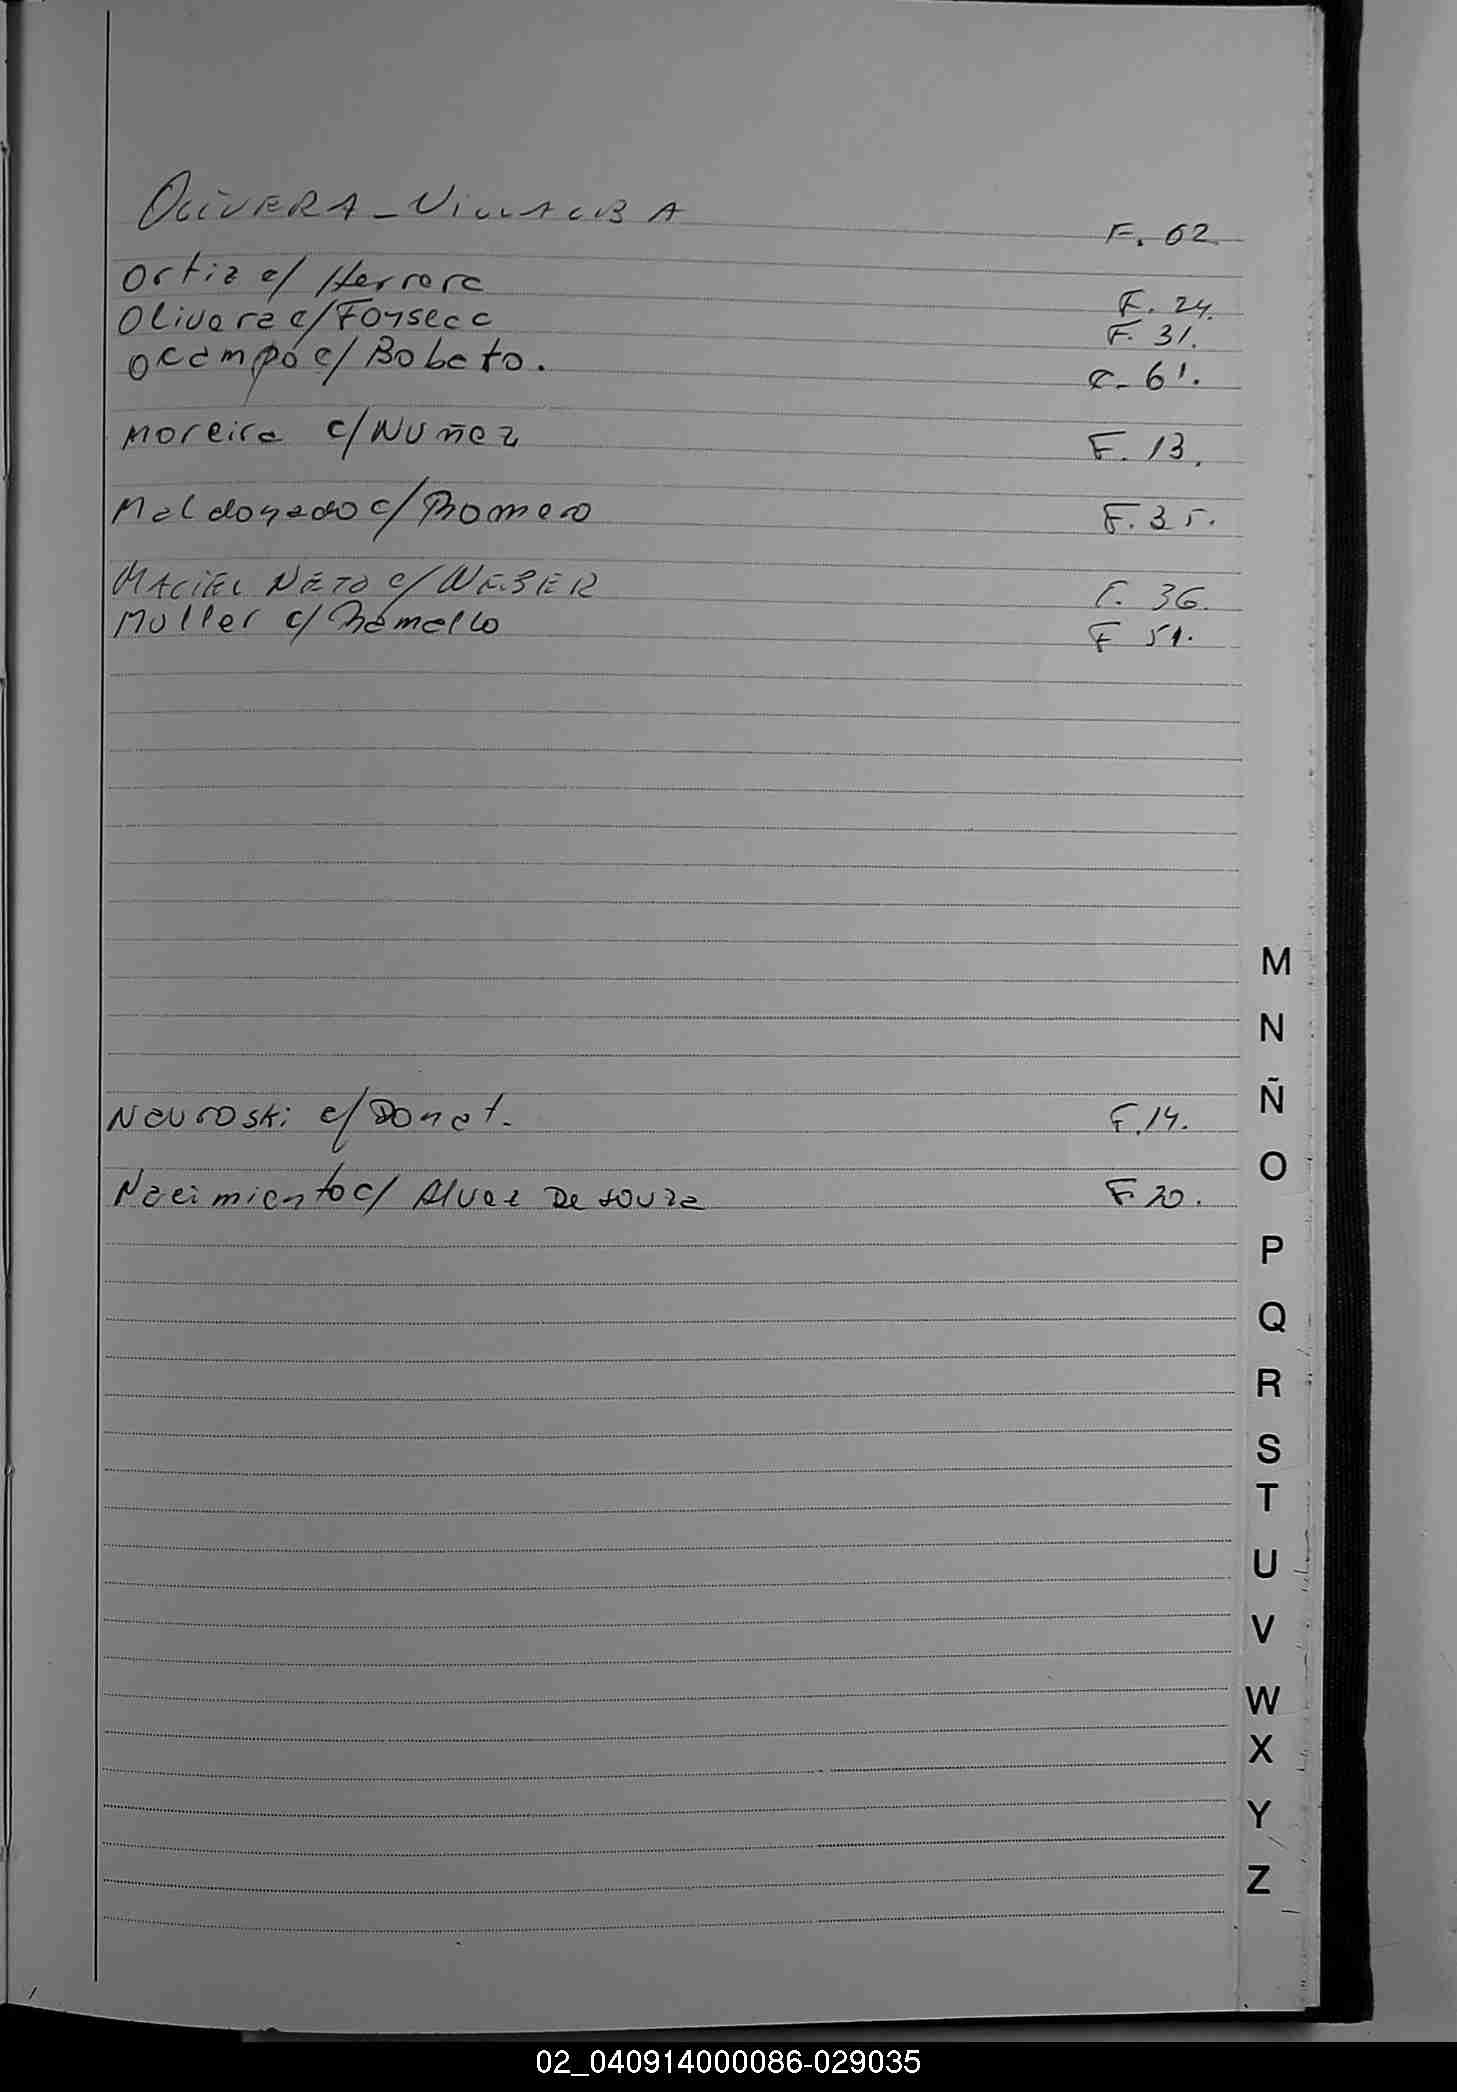 OLIVERA - VILLALBA F. 62.
Ortiz c/ Herrera F. 24.
Olivera c/ Fonseca F. 31.
Ocampo c/ Bobato. F. 61.
Moreira c/ Nuñez F. 13.
Maldonado c/ Romero F. 35.
MACIEL NETO c/ WEBER F. 36.
Muller c/ Ramello F 51.
M
N
Ñ
Navroski c/ Donat. F. 14.
O
Nacimiento c/ Alvez De souza F 20.
P
Q
R
S
T
U
V
W
X
Y
Z
02_040914000086-029035